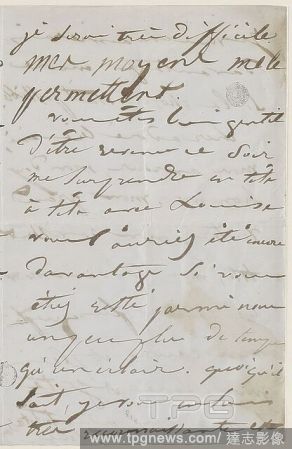 je serai très difficile
mes moyens me le
permettent.
vous êtes bien gentil
d'être venu ce soir
me surprendre en tête
à tête avec Louise
vous l'auriez été encore
davantage si vous
étiez resté parmi nous
un peu plus de temps
qu'un éclair. quoiqu'il
soit, je vous en suis
très reconnaissante et
TPG
www.tpgnews.com/達志影像